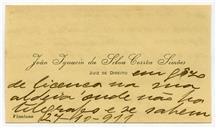 João Ignacio da Silva Corrêa Simões
JUIZ DE DIREITO em gôzo
de licença na sua
aldeia onde não ha
telegrapo e se sabem
Vimioso 27-10-911